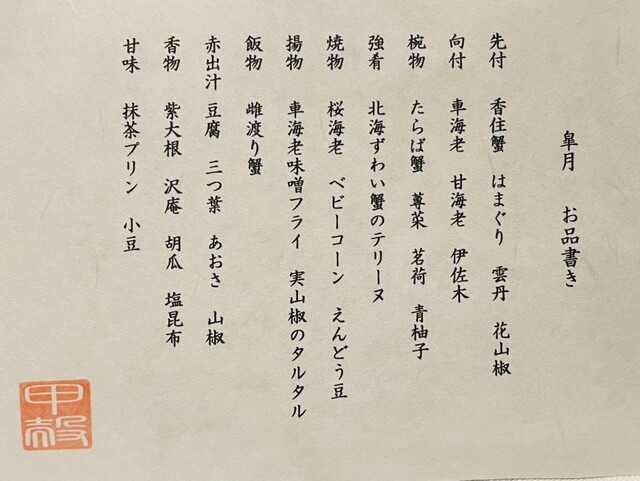 皐月　お品書き
先付　香住蟹　はまぐり　雲丹　花山椒
向付　車海老　甘海老　伊佐木
椀物　たらば蟹　蓴菜　茗荷　青柚子
強肴　北海ずわい蟹のテリーヌ
焼物　桜海老　ベビーコーン　えんどう豆
揚物　車海老味噌フライ　実山椒のタルタル
飯物　雌渡り蟹
赤出汁　豆腐　三つ葉　あおさ　山椒
香物　紫大根　沢庵　胡瓜　塩昆布
甘味　抹茶プリン　小豆
甲殻